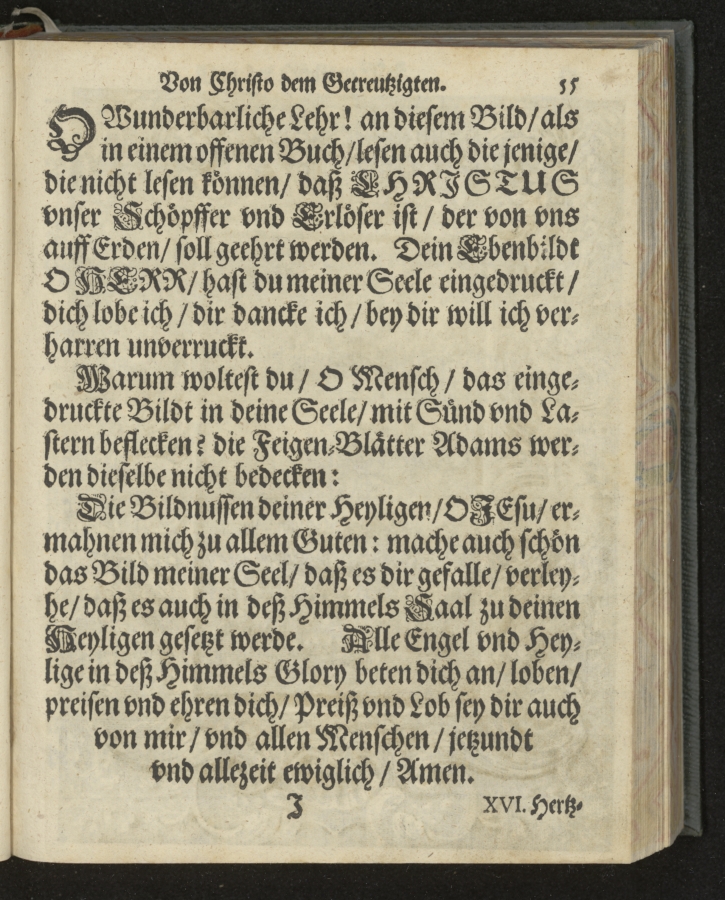 Von Christo dem Gecreutzigten. 55
O Wunderbarliche Lehr! an diesem Bild/ als
in einem offenen Buch/ lesen auch die jenige/
die nicht lesen können/ daß CHRISTUS
vnser Schöpffer vnd Erlöser ist / der von vns
auff Erden/ soll geehrt werden. Dein Ebenbildt
O HERR/ hast du meiner Seele eingedruckt /
dich lobe ich / dir dancke ich / bey dir will ich ver⸗
harren unverruckt.
Warum woltest du / O Mensch / das einge⸗
druckte Bildt in deine Seele/ mit Sünd vnd La⸗
stern beflecken? die Feigen⸗Blätter Adams wer⸗
den dieselbe nicht bedecken:
Die Bildnussen deiner Heyligen/ O JEsu/ er⸗
mahnen mich zu allem Guten: mache auch schön
das Bild meiner Seel/ daß es dir gefalle/ verley⸗
he/ daß es auch in deß Himmels Saal zu deinen
Heyligen gesetzt werde. Alle Engel vnd Hey⸗
lige in deß Himmels Glory beten dich an/ loben/
preisen vnd ehren dich/ Preiß vnd Lob sey dir auch
von mir / vnd allen Menschen / jetzundt
vnd allezeit ewiglich / Amen.
J XVI. Hertz⸗